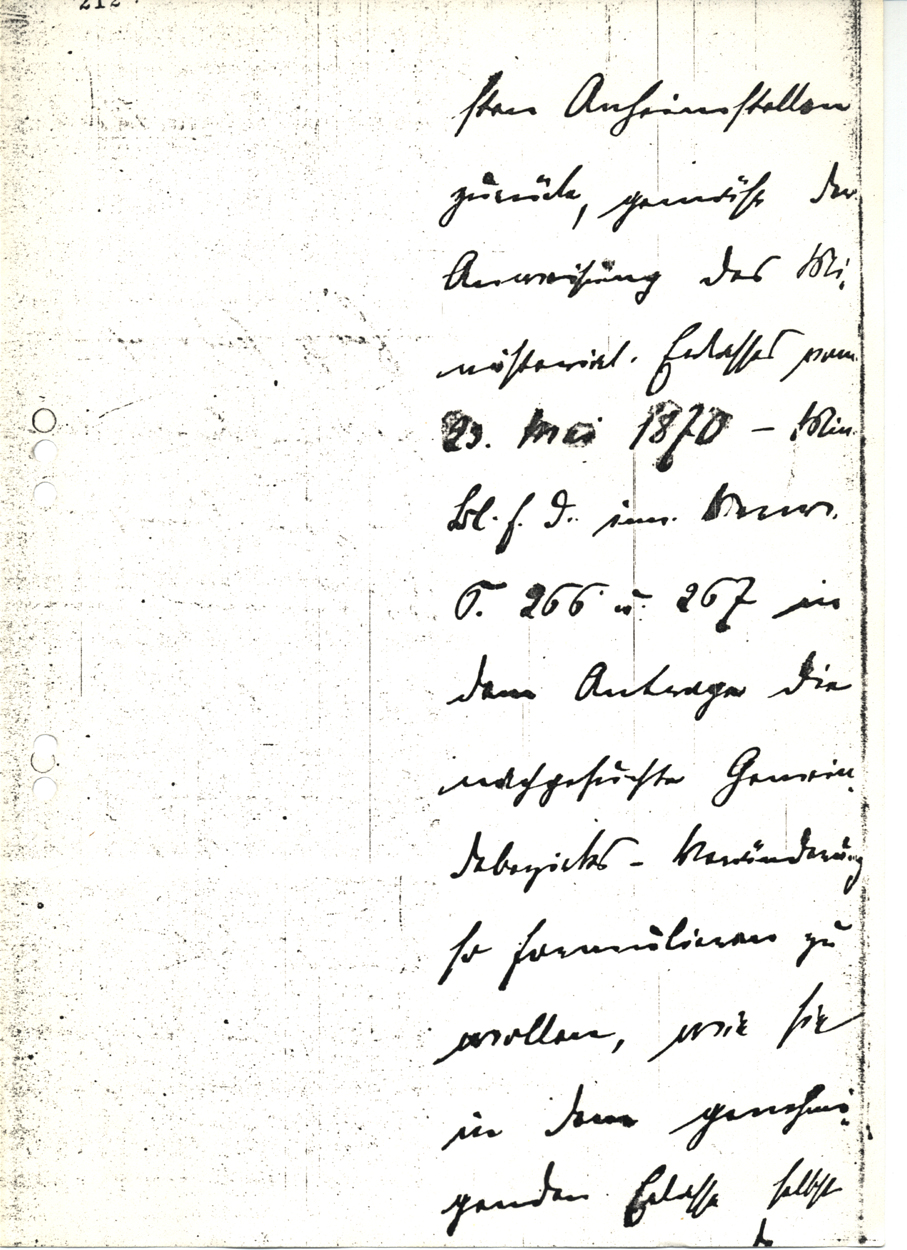 212
sten Anheimstellen
zurück, gemäß der
Anweisung des Mi-
nisterial. Erlasses vom
23. Mai 1870 – Min.
Bl. f. d. inn. Verw.
S. 266 u. 267 in
dem Antrage die
nachgesuchte Gemein-
debezirks - Veränderung
so formuliren zu
wollen, wie sie
in dem genehmi-
genden Erlasse selbst